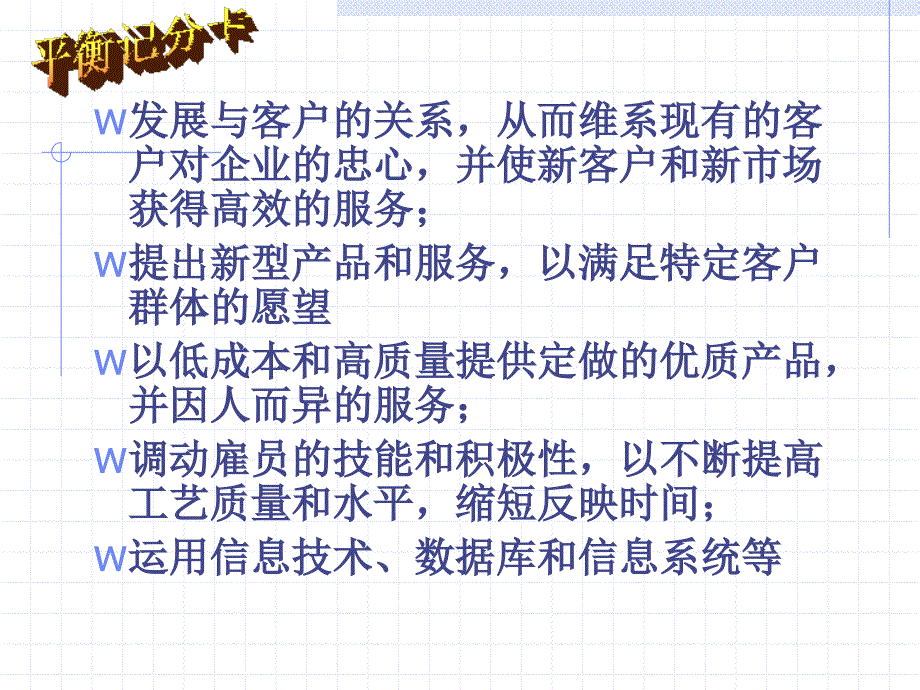 平衡记分卡
W发展与客户的关系，从而维系现有的客
户对企业的忠心，并使新客户和新市场
获得高效的服务；
W提出新型产品和服务，以满足特定客户
群体的愿望
W以低成本和高质量提供定做的优质产品，
并因人而异的服务；
W调动雇员的技能和积极性，以不断提高
工艺质量和水平，缩短反映时间；
W运用信息技术、数据库和信息系统等